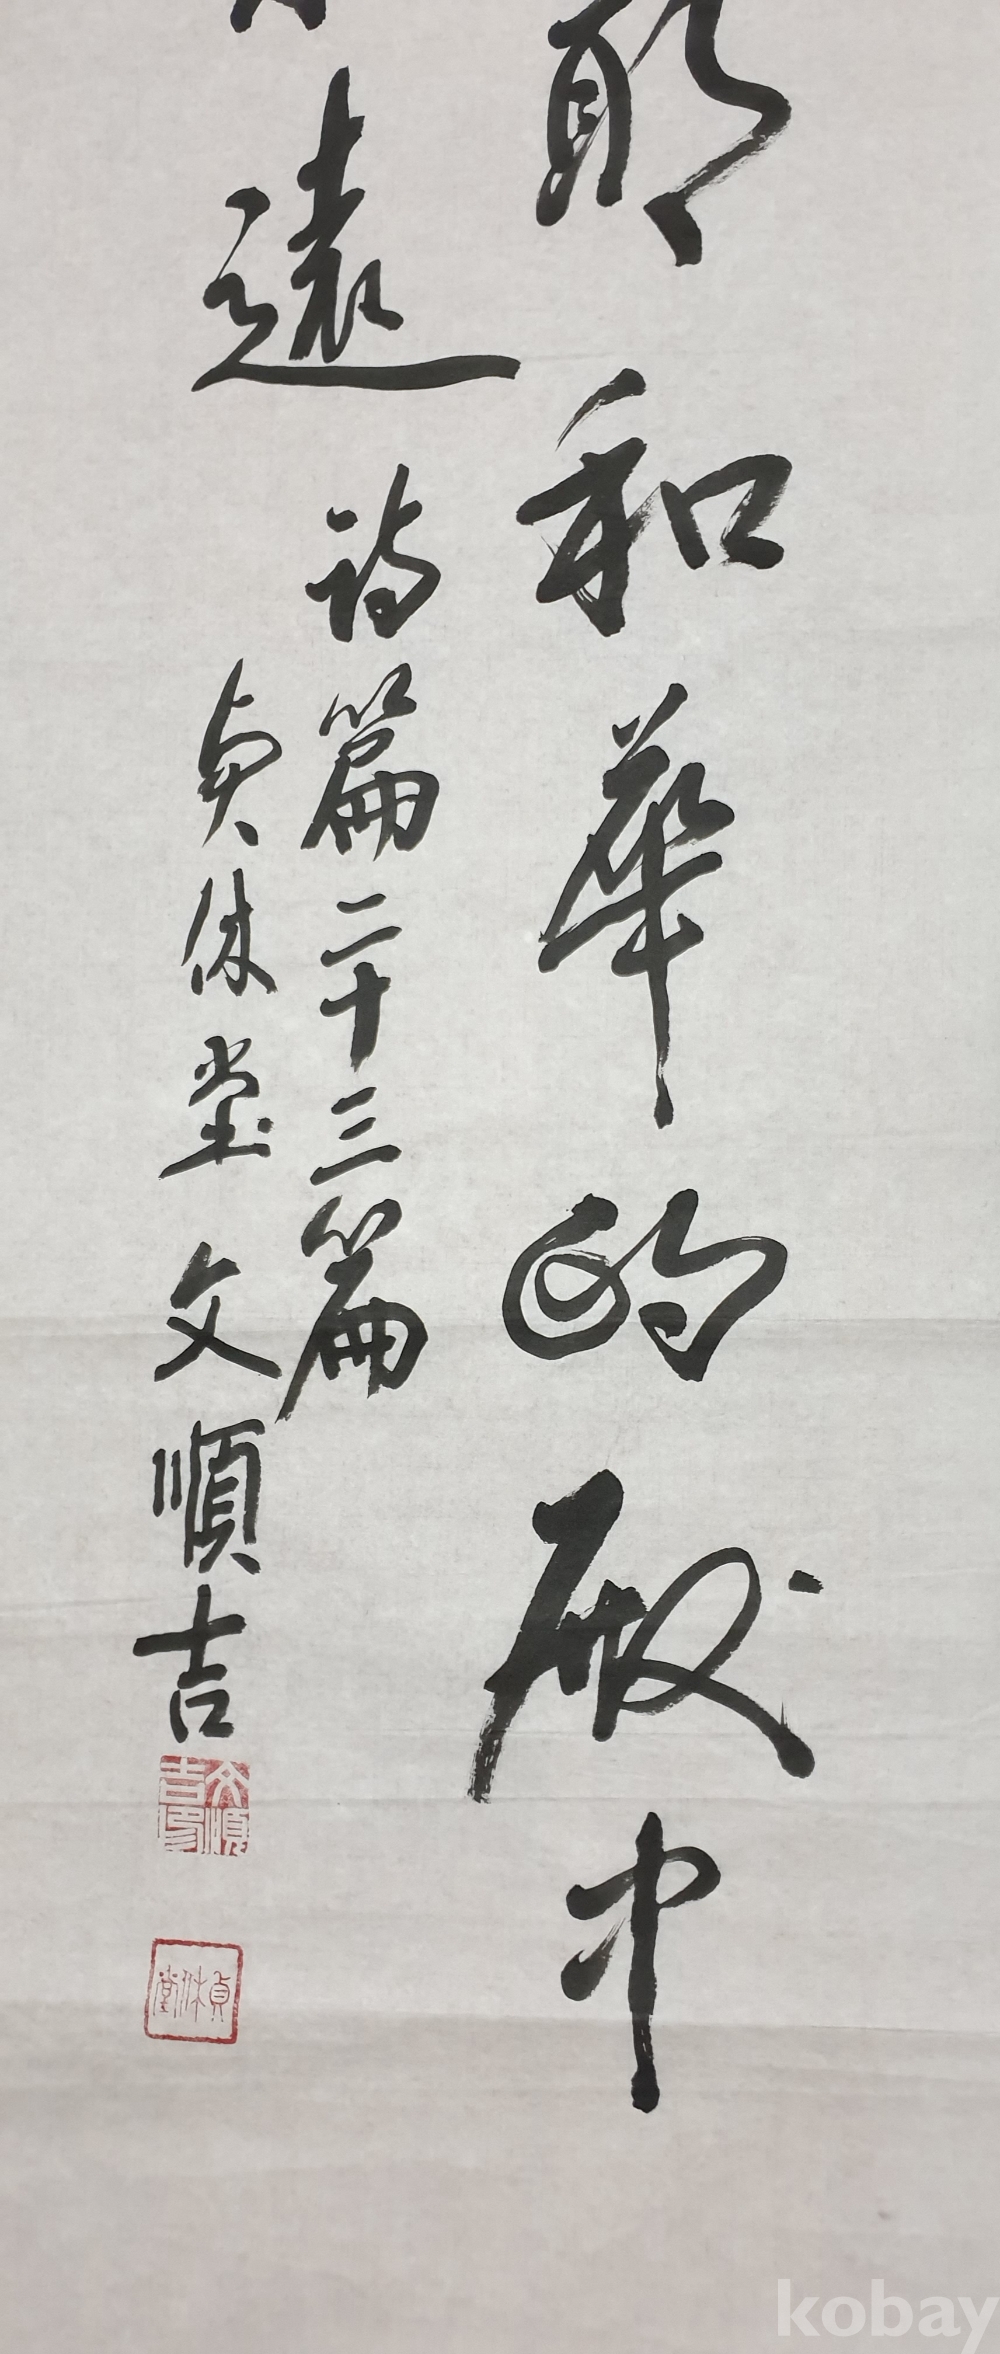 耶和華的殿中
遠
詩篇二十三篇
貞休堂 文順吉
文順吉印
貞休堂
kobay